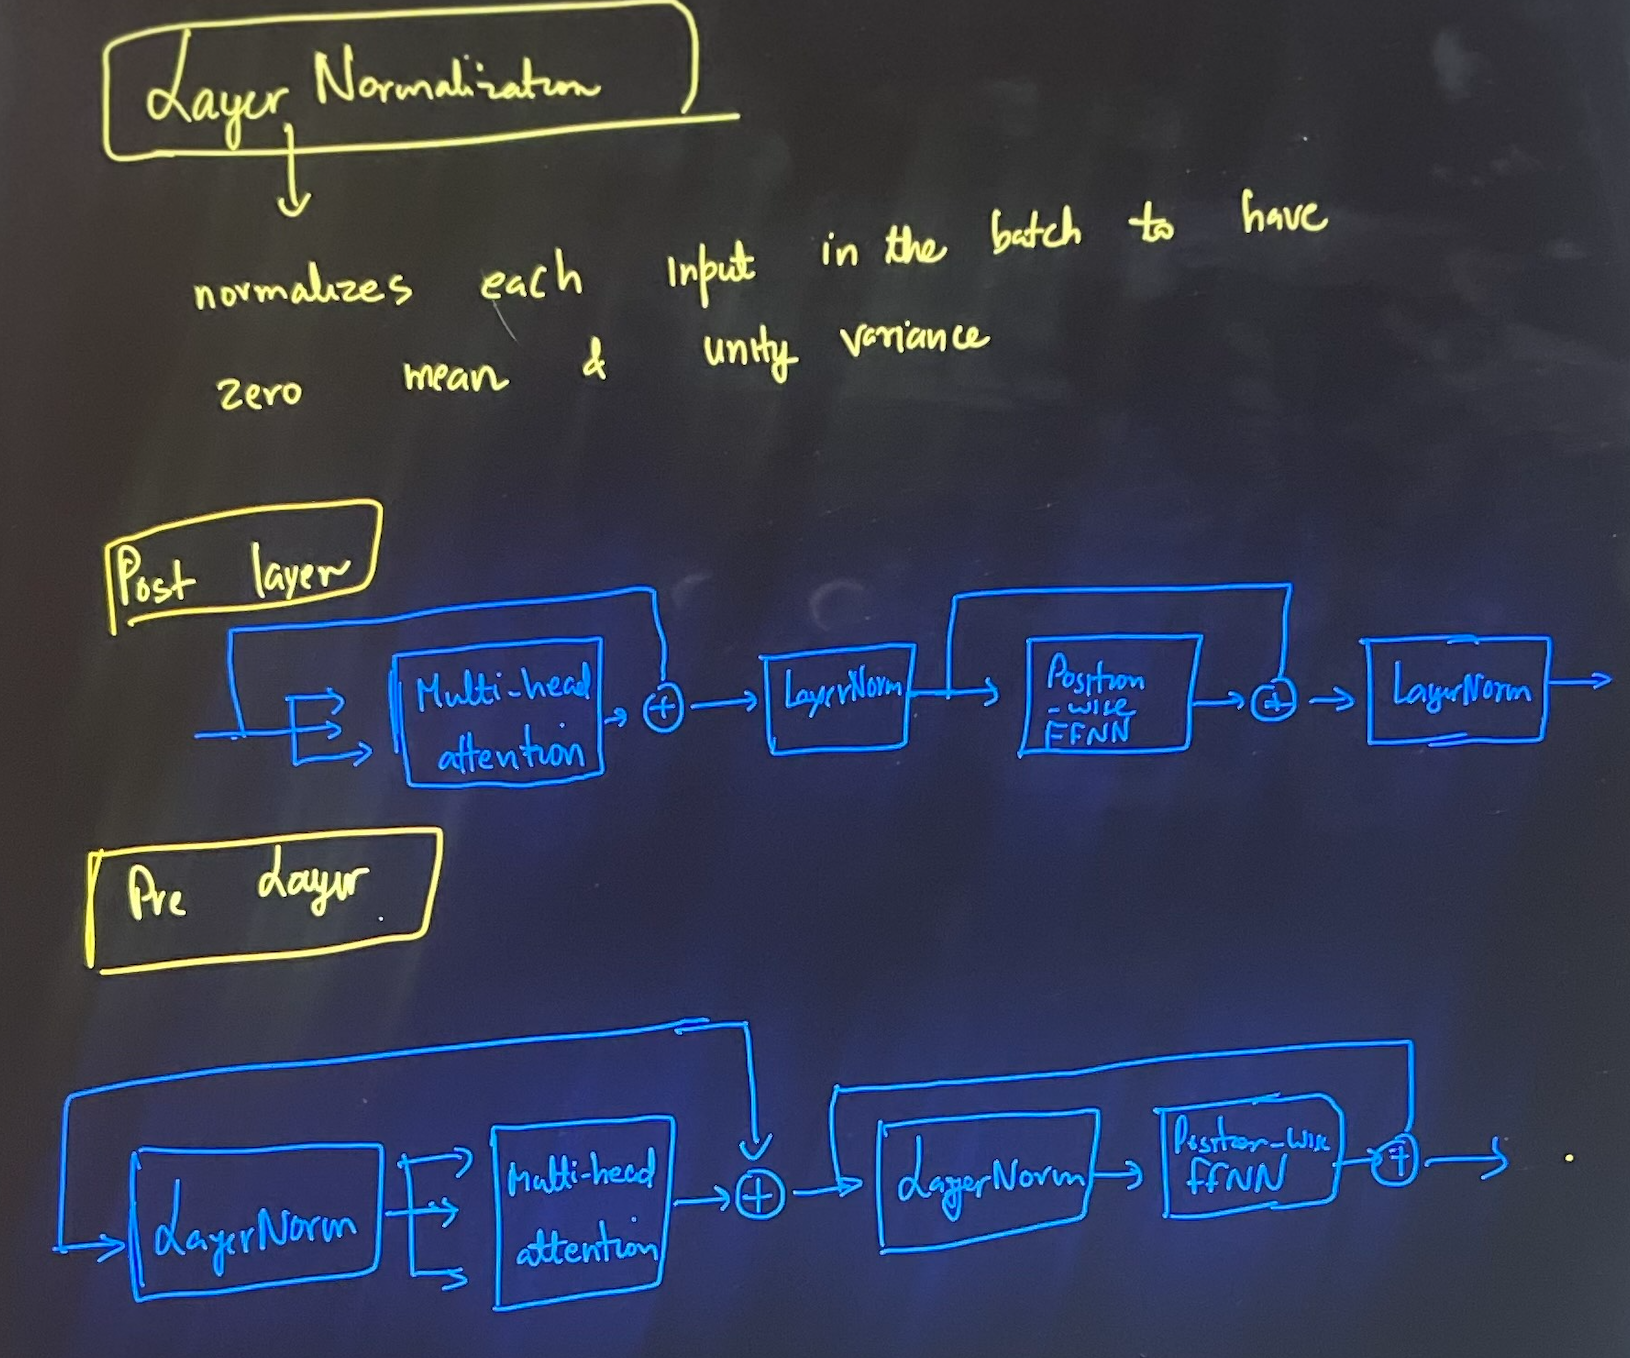 Layer Normalization
normalizes each Input in the batch to have
zero mean & unity variance
Post layer
Multi-head
attention
+
LayerNorm
Position
-wise
FFNN
+
LayerNorm
Pre Layer
LayerNorm
Multi-head
attention
+
LayerNorm
Position-wise
FFNN
+